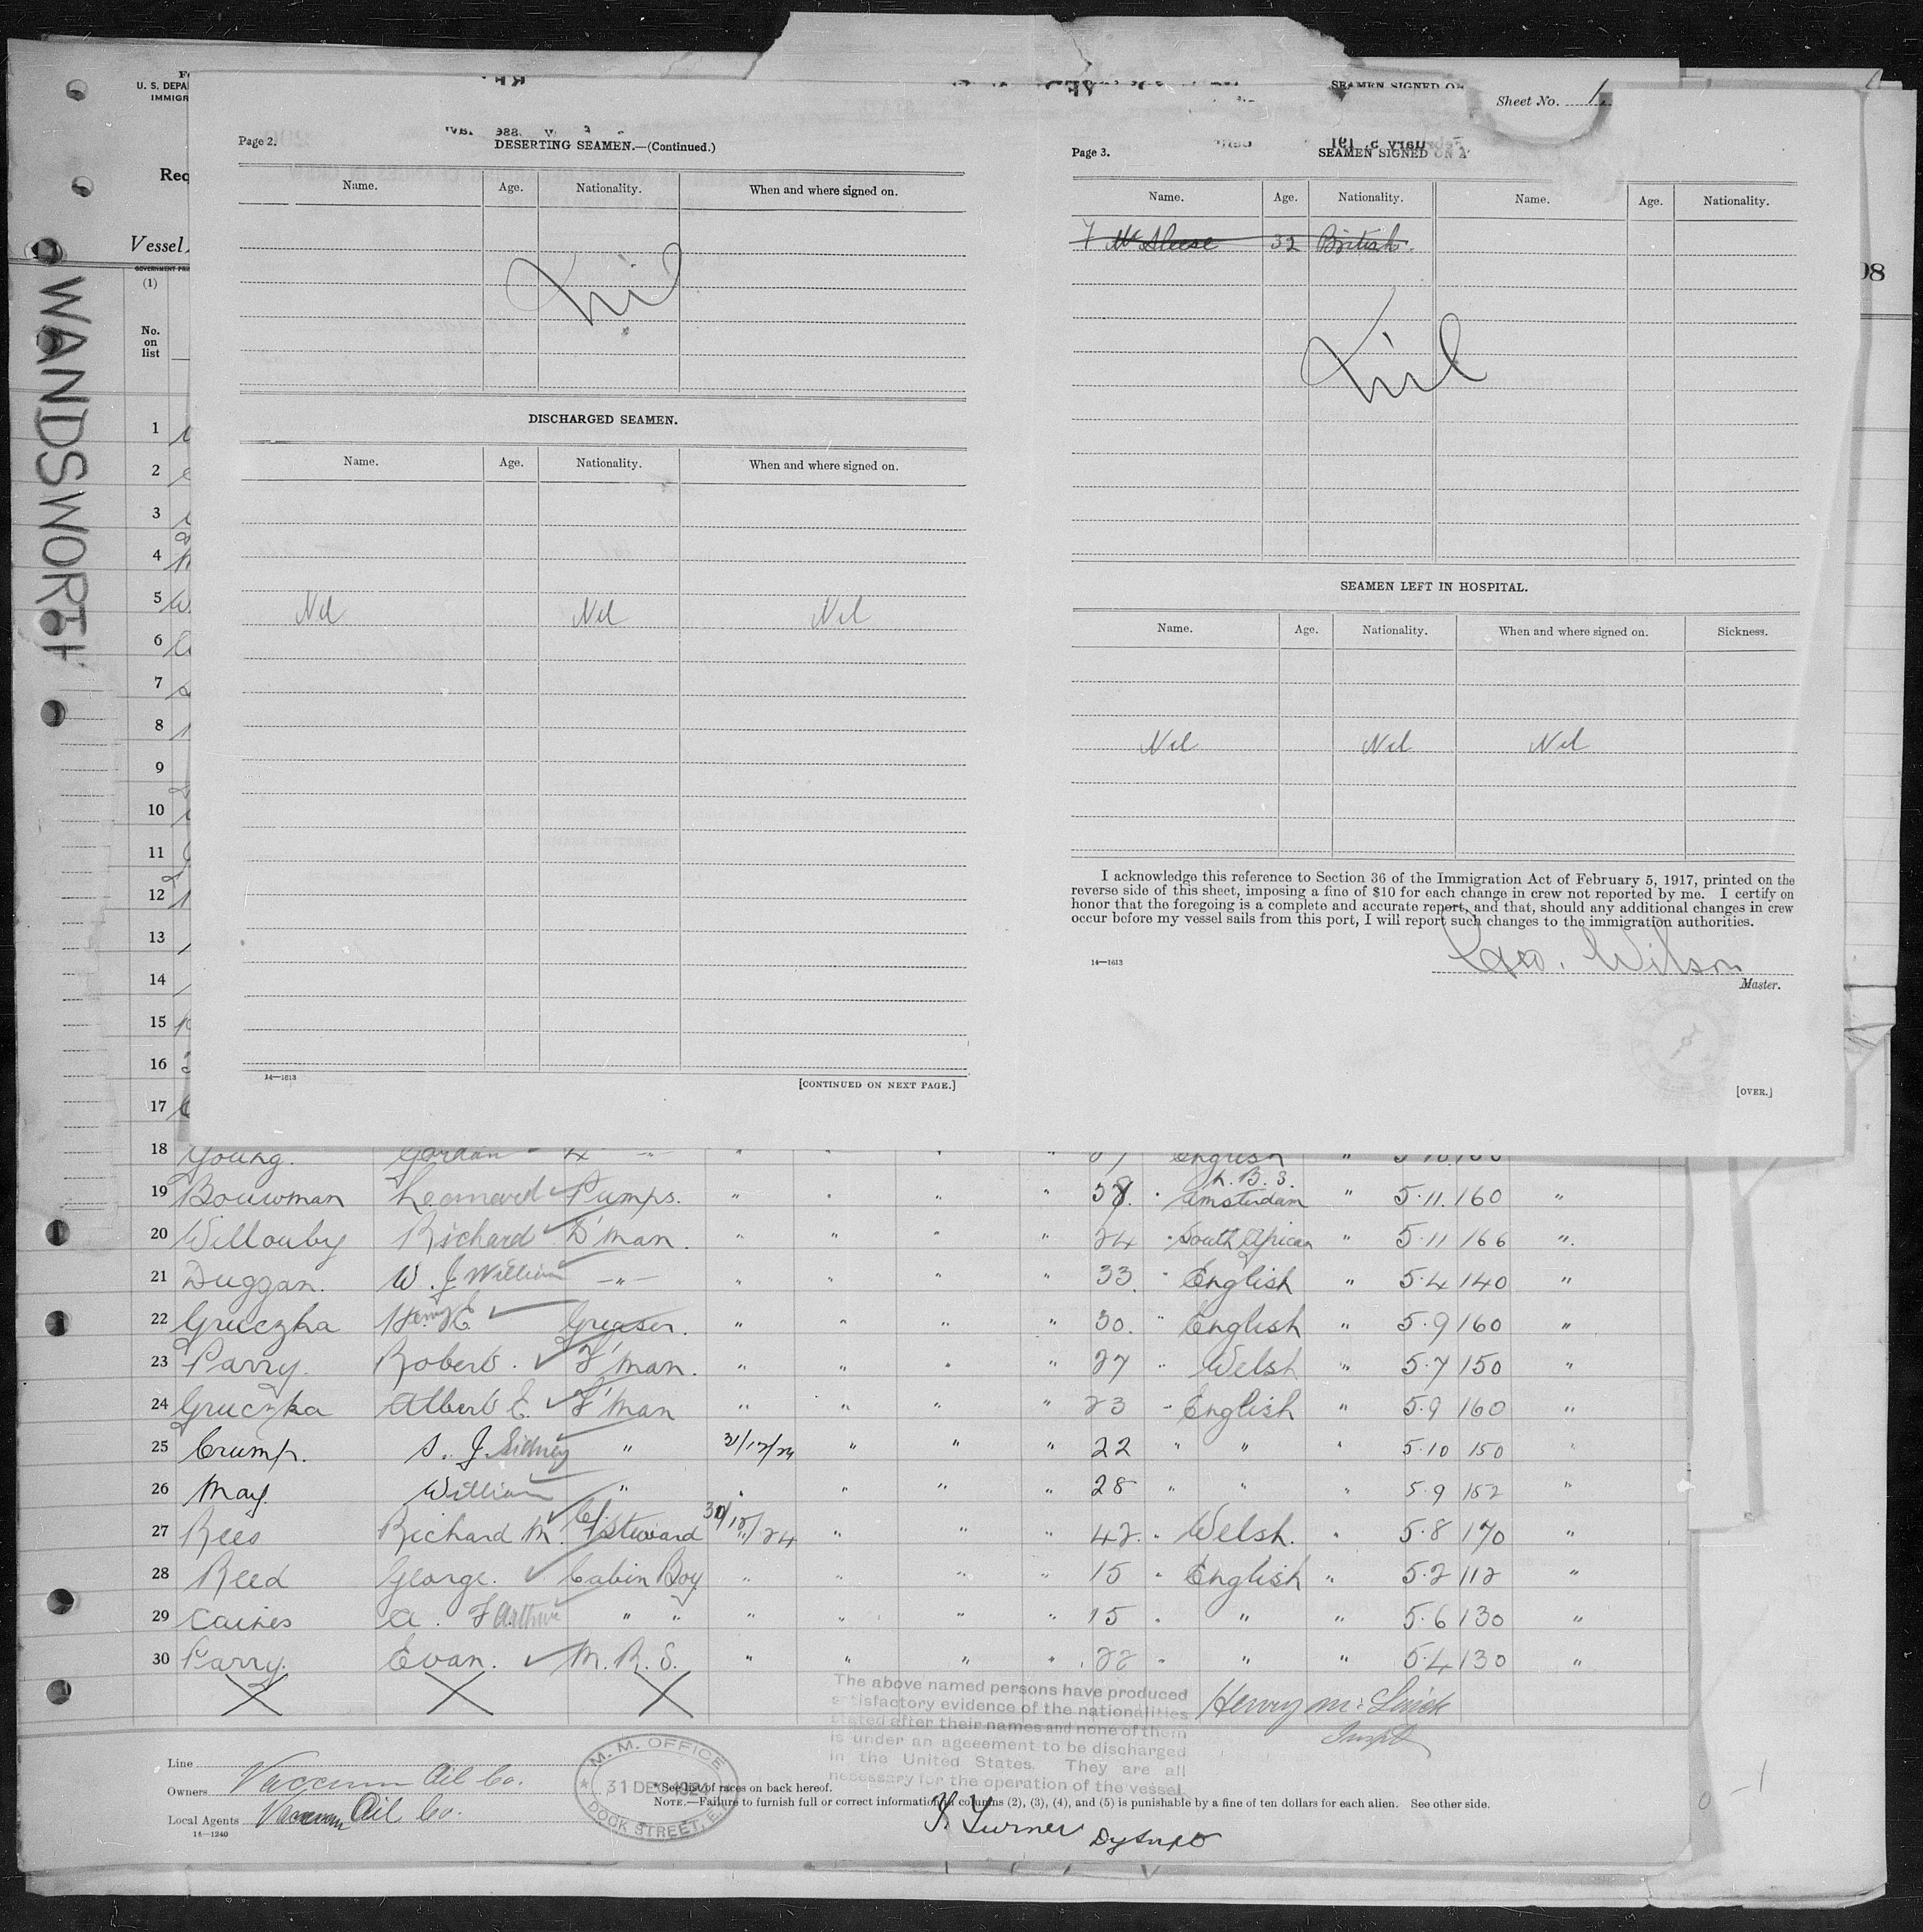 U. S. DEPA
IMMIGR
Req
Vessel
(1)
No.
on
list
WANDSWORTH
1
2
3
4
5
6
7
8
9
10
11
12
13
14
15
16
17
98
Page 2.
DESERTING SEAMEN.—(Continued.)
Name. Age. Nationality. When and where signed on.
Nil
DISCHARGED SEAMEN.
Name. Age. Nationality. When and where signed on.
Nil Nil Nil
14—1613
[CONTINUED ON NEXT PAGE.]
SEAMEN SIGNED ON
Sheet No. 1.
Page 3.
SEAMEN SIGNED ON A
Name. Age. Nationality. Name. Age. Nationality.
32 British.
Nil
SEAMEN LEFT IN HOSPITAL.
Name. Age. Nationality. When and where signed on. Sickness.
Nil Nil Nil
I acknowledge this reference to Section 36 of the Immigration Act of February 5, 1917, printed on the
reverse side of this sheet, imposing a fine of $10 for each change in crew not reported by me. I certify on
honor that the foregoing is a complete and accurate report, and that, should any additional changes in crew
occur before my vessel sails from this port, I will report such changes to the immigration authorities.
14—1613
Geo. Wilson
Master.
[OVER.]
18 Young. Gordon " " " " English "
19 Bouwman Leonard Pumps. " " " Amsterdam " 5.11. 160 "
20 Willouby Richard D'man. " " " " 24 " South African " 5.11 166 "
21 Duggan. W. J William " " " " " 33 " English " 5.4 140 "
22 Gruczka Henry E Greaser. " " " " 30. " English " 5.9 160 "
23 Parry. Robert. F'man. " " " " 27 " Welsh " 5.7 150 "
24 Gruczka Albert E. F'man " " " " 23 " English " 5.9 160 "
25 Crump. S. J. Sidney " 31/12/24 " " " 22 " " " 5.10 150 "
26 May. William " " " " " 28 " " " 5.9 152 "
27 Rees Richard M. C/Steward 30/12/24 " " " 42 " Welsh. " 5.8 170 "
28 Reed George. Cabin Boy " " " " 15 " English " 5.2 112 "
29 Caines A. F Arthur " " " " " " 15 " " " 5.6 130 "
30 Parry. Evan. M. R. S. " " " " 22 " " " 5.4 130 "
X X X
The above named persons have produced
satisfactory evidence of the nationalities
stated after their names and none of them
is under an ageeement to be discharged
in the United States. They are all
necessary for the operation of the vessel.
Line
Owners Vaccum Oil Co.
Local Agents Vacuum Oil Co.
14—1240
M. M. OFFICE
31 DEC 1924
DOCK STREET, E.
*See list of races on back hereof.
NOTE.—Failure to furnish full or correct information in columns (2), (3), (4), and (5) is punishable by a fine of ten dollars for each alien. See other side.
Turner Dy Supt